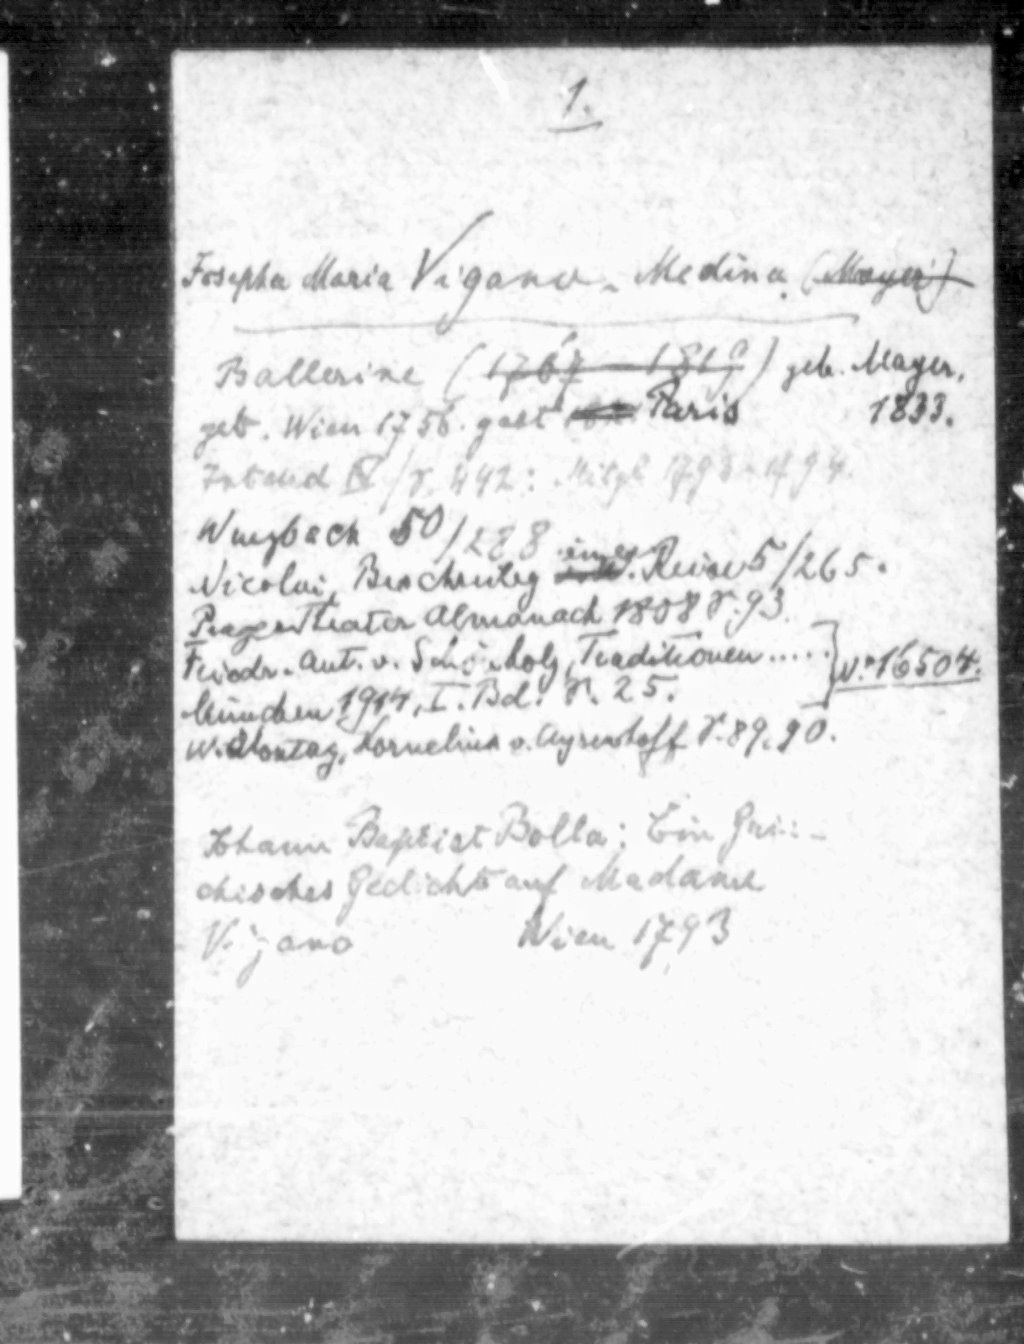 1.
Josepha Maria Vigano - Medina (Mayer)
Ballerine (1767 - 1819) geb. Mayer,
geb. Wien 1756. gest Paris 1833.
IV / S. 442: Mitgl 1794.
Wurzbach 50/288
Nicolai, Beschreibg einer Reise 5/265.
Prager Theater Almanach 1808 S. 93.
Friedr. Ant. v. Schönholz, Traditionen .....
München 1914, I. Bd. S. 25. } V. 16504.
W. Montag, Kornelius v. Ayrenhoff S. 89, 90.
Johann Baptist Bolla: Ein Grie-
chisches Gedicht auf Madame
Vigano Wien 1793